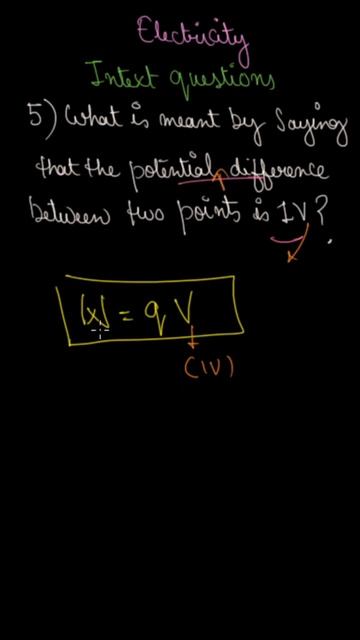 Electricity
Intext questions
5) What is meant by Saying
that the potential difference
between two points is 1V?
W = q V
(1V)